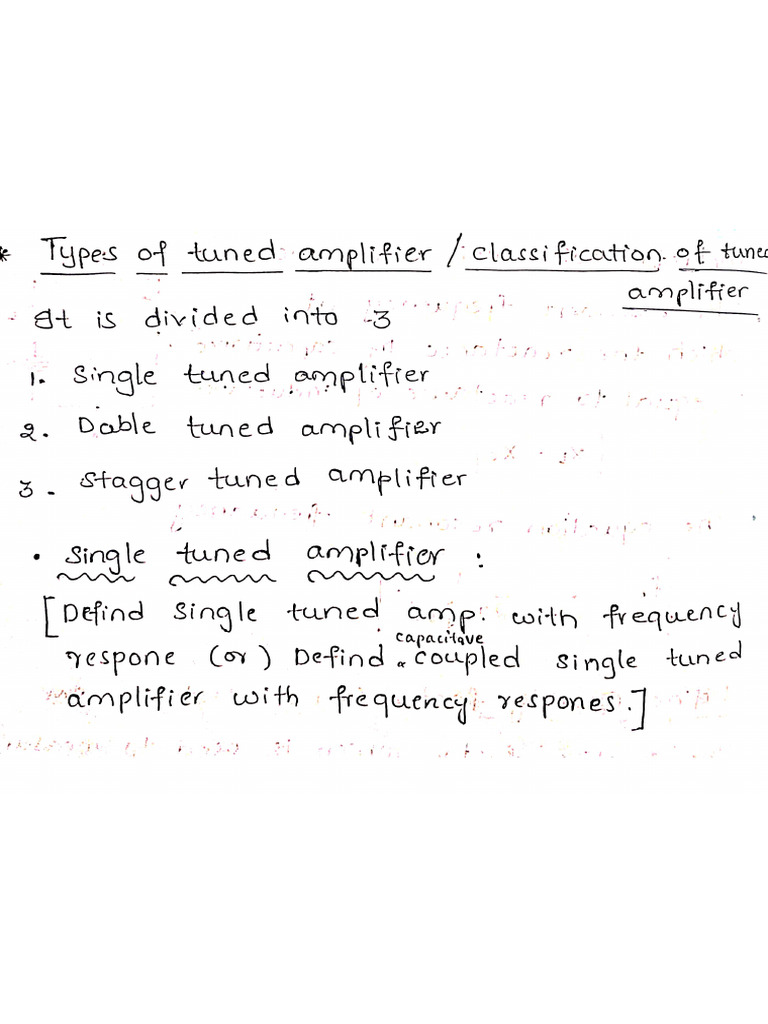 * Types of tuned amplifier / classification of tuned
amplifier
It is divided into 3
1. Single tuned amplifier
2. Dable tuned amplifier
3. Stagger tuned amplifier
• Single tuned amplifier :
[Defind Single tuned amp. with frequency
capacitave
respone (or) Defind coupled single tuned
amplifier with frequency respones.]